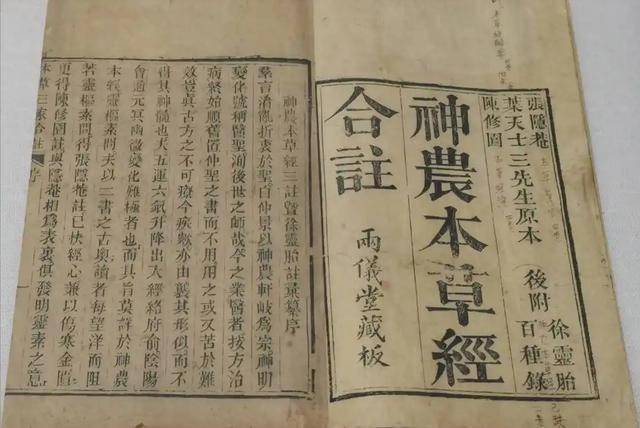 張隱菴
葉天士三先生原本
陳修園
後附
徐靈胎
百種錄
神農本草經
合註
兩儀堂藏板
神農本草經三註暨徐靈胎註彙纂序
羣言淆亂折衷於聖自仲景以神農軒岐爲宗神明
變化號稱醫聖洵後世之師哉今之業醫者按方治
病始順舊置仲聖之書而不用用之或又苦於難
效豈真古方之不可療今疾歟亦由襲其形似而不
得其神髓也夫天五運六氣升降出入經絡府俞陰陽
會通元冥幽微變化難極者也而其旨莫詳於神農
本經靈樞素問夫以二書之古奧讀者每望洋而阻
若靈樞素問得張隱菴註已快經心兼以傷寒金匱
更得陳修園註與隱菴相爲表裏俱發明靈素之意
本草三家合註 序